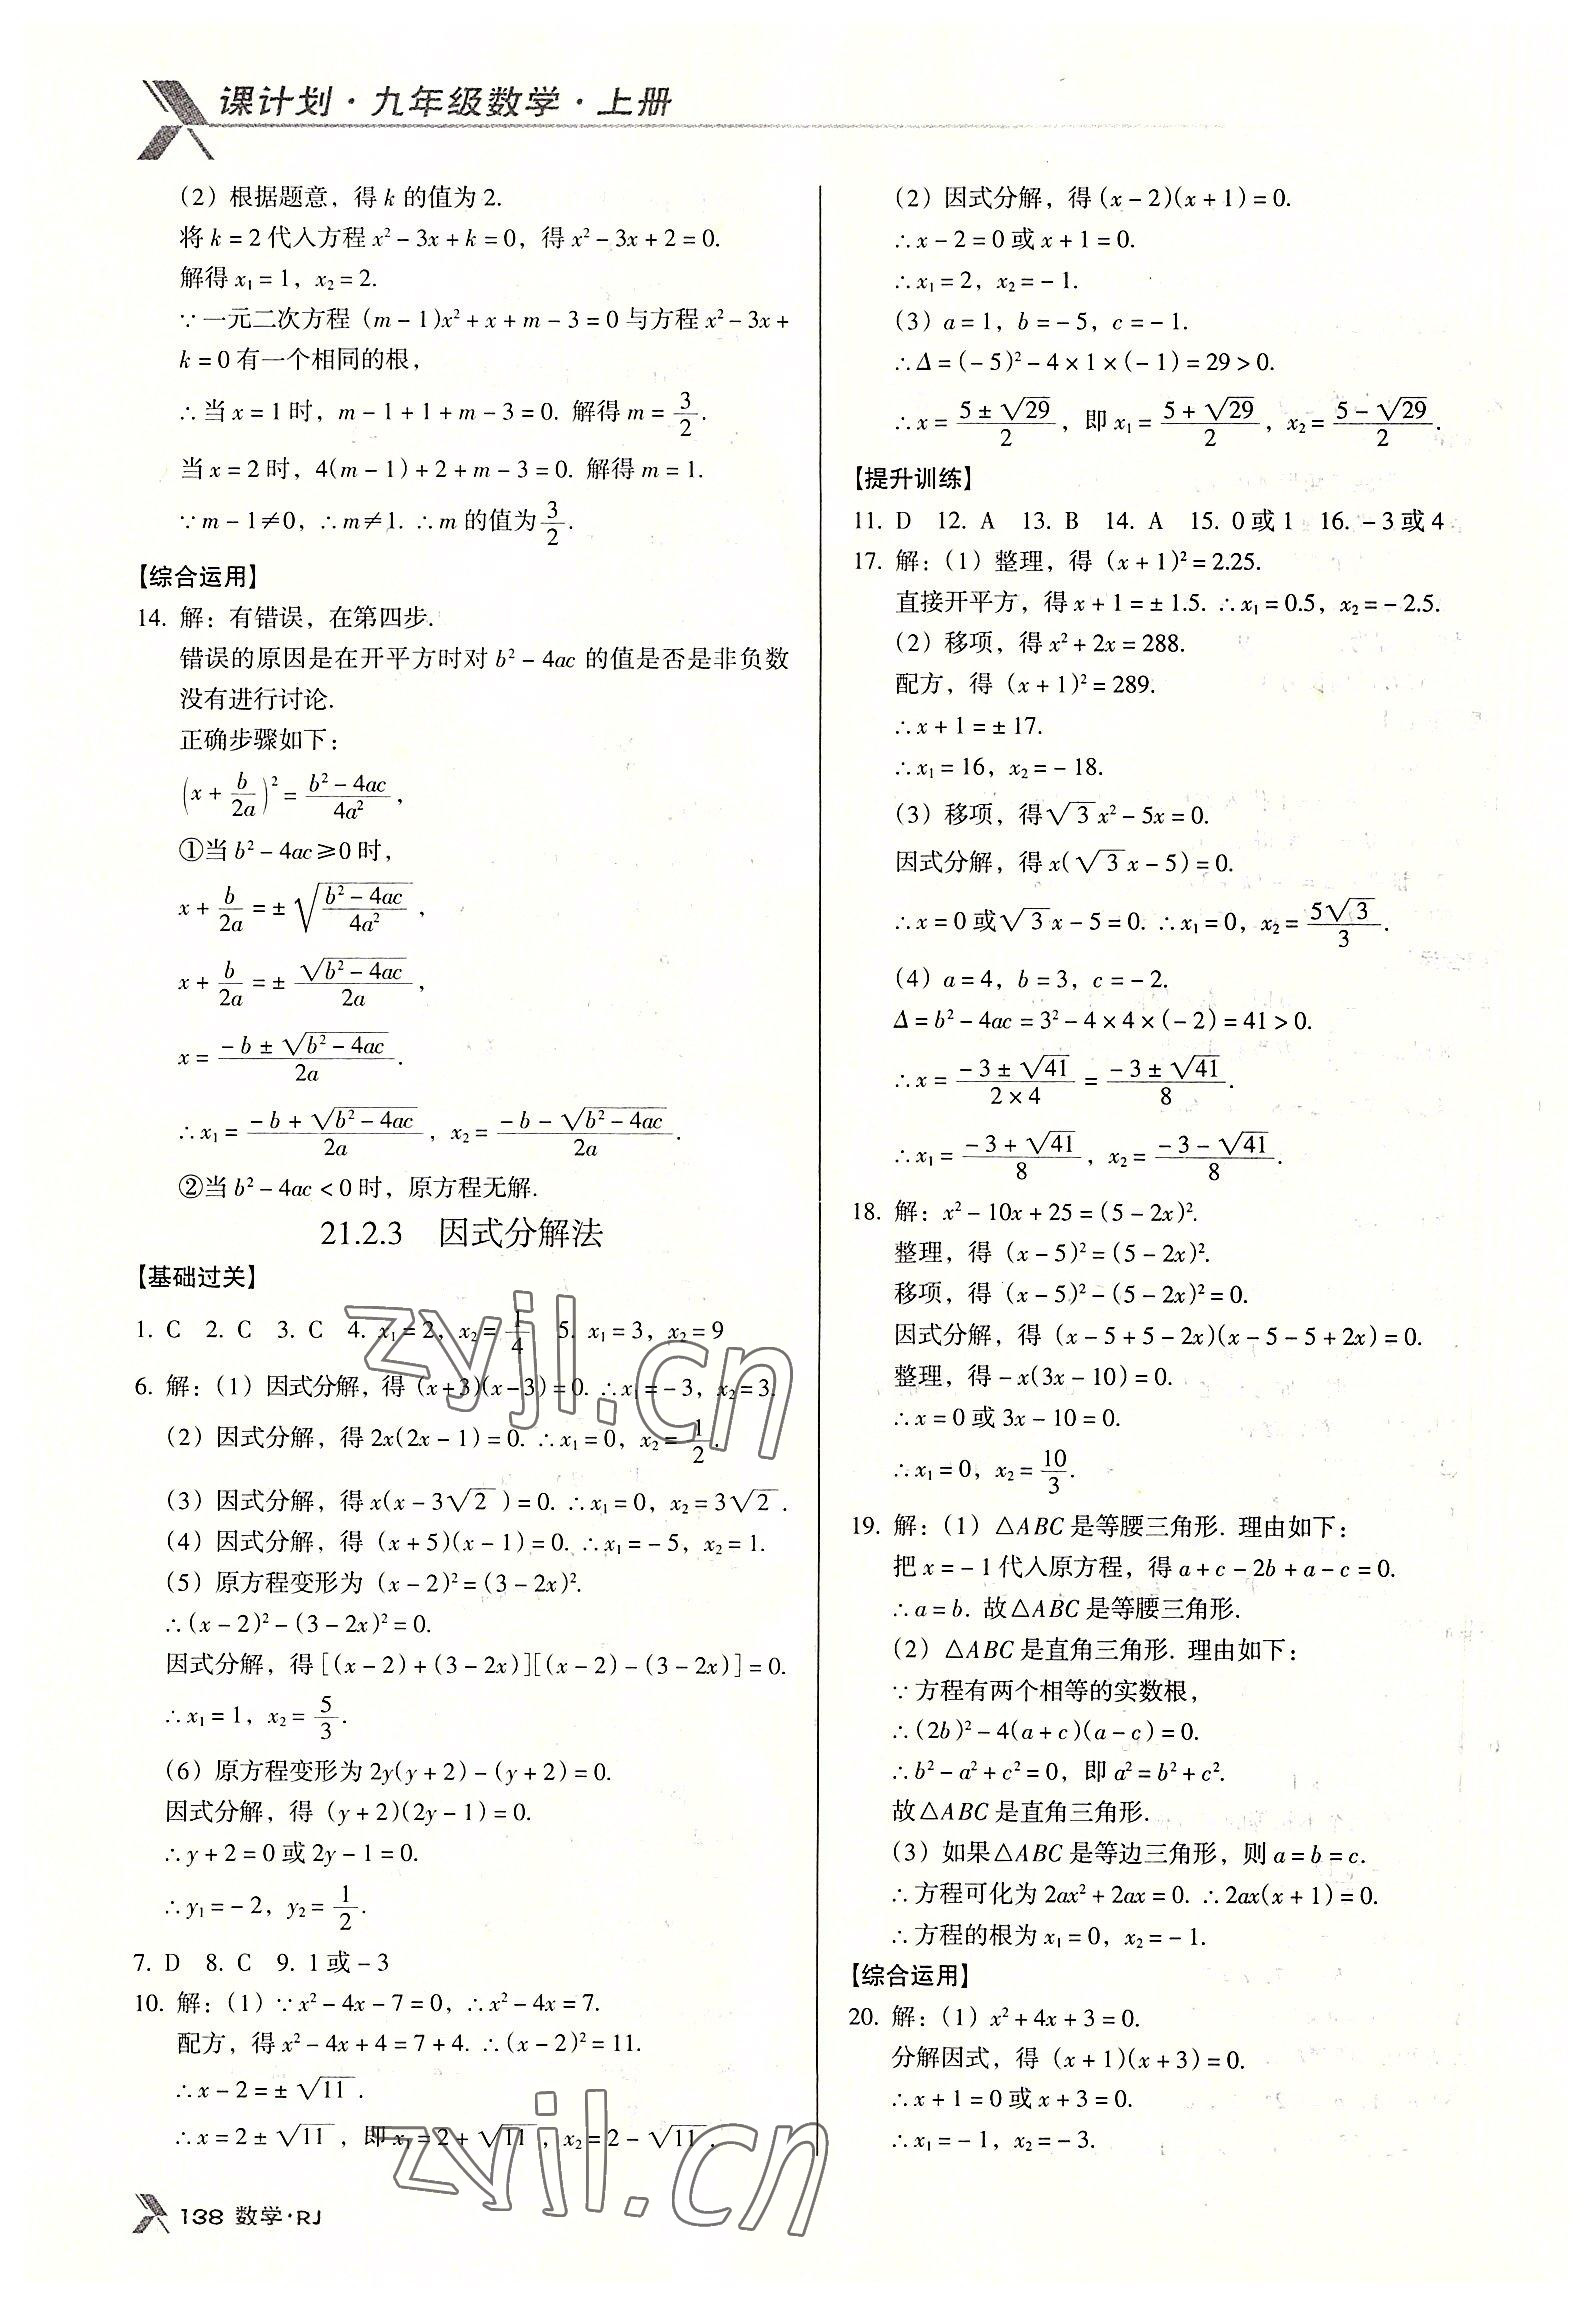 课计划·九年级数学·上册
(2) 根据题意，得 k 的值为 2.
将 k = 2 代入方程 x² − 3x + k = 0，得 x² − 3x + 2 = 0.
解得 x₁ = 1，x₂ = 2.
∵一元二次方程 (m − 1)x² + x + m − 3 = 0 与方程 x² − 3x +
k = 0 有一个相同的根，
∴当 x = 1 时，m − 1 + 1 + m − 3 = 0. 解得 m = 3/2.
当 x = 2 时，4(m − 1) + 2 + m − 3 = 0. 解得 m = 1.
∵m − 1 ≠ 0，∴m ≠ 1. ∴m 的值为 3/2.
【综合运用】
14. 解：有错误，在第四步.
错误的原因是在开平方时对 b² − 4ac 的值是否是非负数
没有进行讨论.
正确步骤如下：
(x + b/2a)² = (b² − 4ac)/4a²，
①当 b² − 4ac ≥ 0 时，
x + b/2a = ± √((b² − 4ac)/4a²)，
x + b/2a = ± √(b² − 4ac)/2a，
x = (−b ± √(b² − 4ac))/2a.
∴x₁ = (−b + √(b² − 4ac))/2a，x₂ = (−b − √(b² − 4ac))/2a.
②当 b² − 4ac < 0 时，原方程无解.
21.2.3 因式分解法
【基础过关】
1. C 2. C 3. C 4. x₁ = 2，x₂ = 1/4 5. x₁ = 3，x₂ = 9
6. 解：(1) 因式分解，得 (x + 3)(x − 3) = 0. ∴x₁ = −3，x₂ = 3.
(2) 因式分解，得 2x(2x − 1) = 0. ∴x₁ = 0，x₂ = 1/2.
(3) 因式分解，得 x(x − 3√2) = 0. ∴x₁ = 0，x₂ = 3√2.
(4) 因式分解，得 (x + 5)(x − 1) = 0. ∴x₁ = −5，x₂ = 1.
(5) 原方程变形为 (x − 2)² = (3 − 2x)².
∴(x − 2)² − (3 − 2x)² = 0.
因式分解，得 [(x − 2) + (3 − 2x)][(x − 2) − (3 − 2x)] = 0.
∴x₁ = 1，x₂ = 5/3.
(6) 原方程变形为 2y(y + 2) − (y + 2) = 0.
因式分解，得 (y + 2)(2y − 1) = 0.
∴y + 2 = 0 或 2y − 1 = 0.
∴y₁ = −2，y₂ = 1/2.
7. D 8. C 9. 1 或 −3
10. 解：(1) ∵x² − 4x − 7 = 0，∴x² − 4x = 7.
配方，得 x² − 4x + 4 = 7 + 4. ∴(x − 2)² = 11.
∴x − 2 = ± √11.
∴x = 2 ± √11，即 x₁ = 2 + √11，x₂ = 2 − √11.
(2) 因式分解，得 (x − 2)(x + 1) = 0.
∴x − 2 = 0 或 x + 1 = 0.
∴x₁ = 2，x₂ = −1.
(3) a = 1，b = −5，c = −1.
∴Δ = (−5)² − 4 × 1 × (−1) = 29 > 0.
∴x = (5 ± √29)/2，即 x₁ = (5 + √29)/2，x₂ = (5 − √29)/2.
【提升训练】
11. D 12. A 13. B 14. A 15. 0 或 1 16. −3 或 4
17. 解：(1) 整理，得 (x + 1)² = 2.25.
直接开平方，得 x + 1 = ± 1.5. ∴x₁ = 0.5，x₂ = −2.5.
(2) 移项，得 x² + 2x = 288.
配方，得 (x + 1)² = 289.
∴x + 1 = ± 17.
∴x₁ = 16，x₂ = −18.
(3) 移项，得 √3x² − 5x = 0.
因式分解，得 x(√3x − 5) = 0.
∴x = 0 或 √3x − 5 = 0. ∴x₁ = 0，x₂ = 5√3/3.
(4) a = 4，b = 3，c = −2.
Δ = b² − 4ac = 3² − 4 × 4 × (−2) = 41 > 0.
∴x = (−3 ± √41)/(2 × 4) = (−3 ± √41)/8.
∴x₁ = (−3 + √41)/8，x₂ = (−3 − √41)/8.
18. 解：x² − 10x + 25 = (5 − 2x)².
整理，得 (x − 5)² = (5 − 2x)².
移项，得 (x − 5)² − (5 − 2x)² = 0.
因式分解，得 (x − 5 + 5 − 2x)(x − 5 − 5 + 2x) = 0.
整理，得 −x(3x − 10) = 0.
∴x = 0 或 3x − 10 = 0.
∴x₁ = 0，x₂ = 10/3.
19. 解：(1) △ABC 是等腰三角形. 理由如下：
把 x = −1 代入原方程，得 a + c − 2b + a − c = 0.
∴a = b. 故△ABC 是等腰三角形.
(2) △ABC 是直角三角形. 理由如下：
∵方程有两个相等的实数根，
∴(2b)² − 4(a + c)(a − c) = 0.
∴b² − a² + c² = 0，即 a² = b² + c².
故△ABC 是直角三角形.
(3) 如果△ABC 是等边三角形，则 a = b = c.
∴方程可化为 2ax² + 2ax = 0. ∴2ax(x + 1) = 0.
∴方程的根为 x₁ = 0，x₂ = −1.
【综合运用】
20. 解：(1) x² + 4x + 3 = 0.
分解因式，得 (x + 1)(x + 3) = 0.
∴x + 1 = 0 或 x + 3 = 0.
∴x₁ = −1，x₂ = −3.
zyjl.cn
zyjl.cn
138 数学·RJ